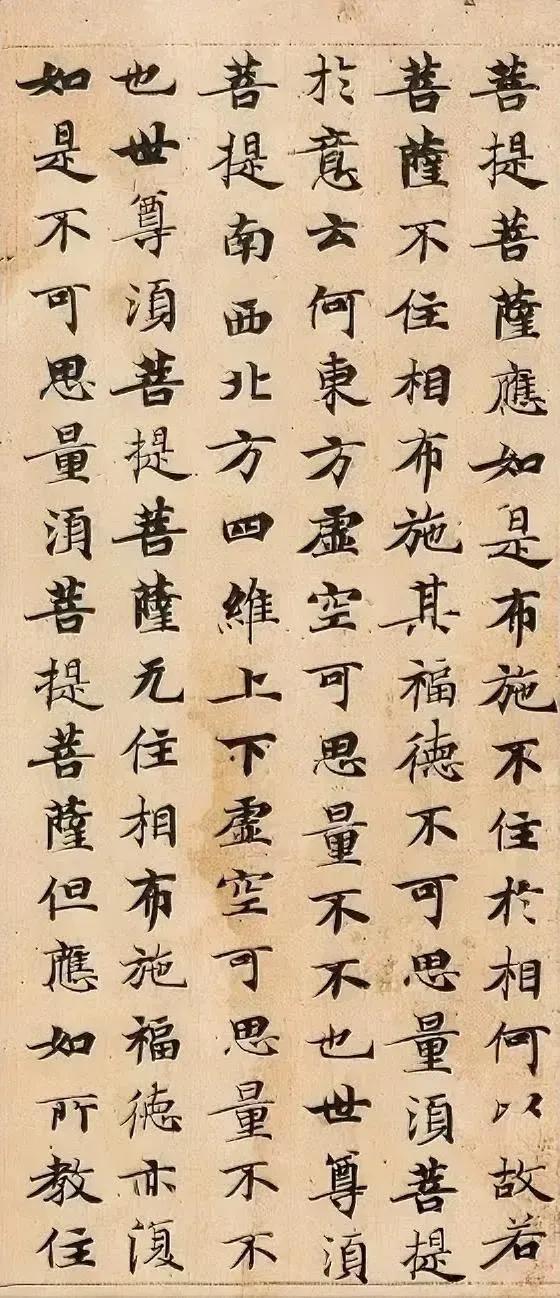 菩提菩薩應如是布施不住於相何以故若
菩薩不住相布施其福德不可思量須菩提
於意云何東方虛空可思量不不也世尊須
菩提南西北方四維上下虛空可思量不不
也世尊須菩提菩薩无住相布施福德亦復
如是不可思量須菩提菩薩但應如所教住